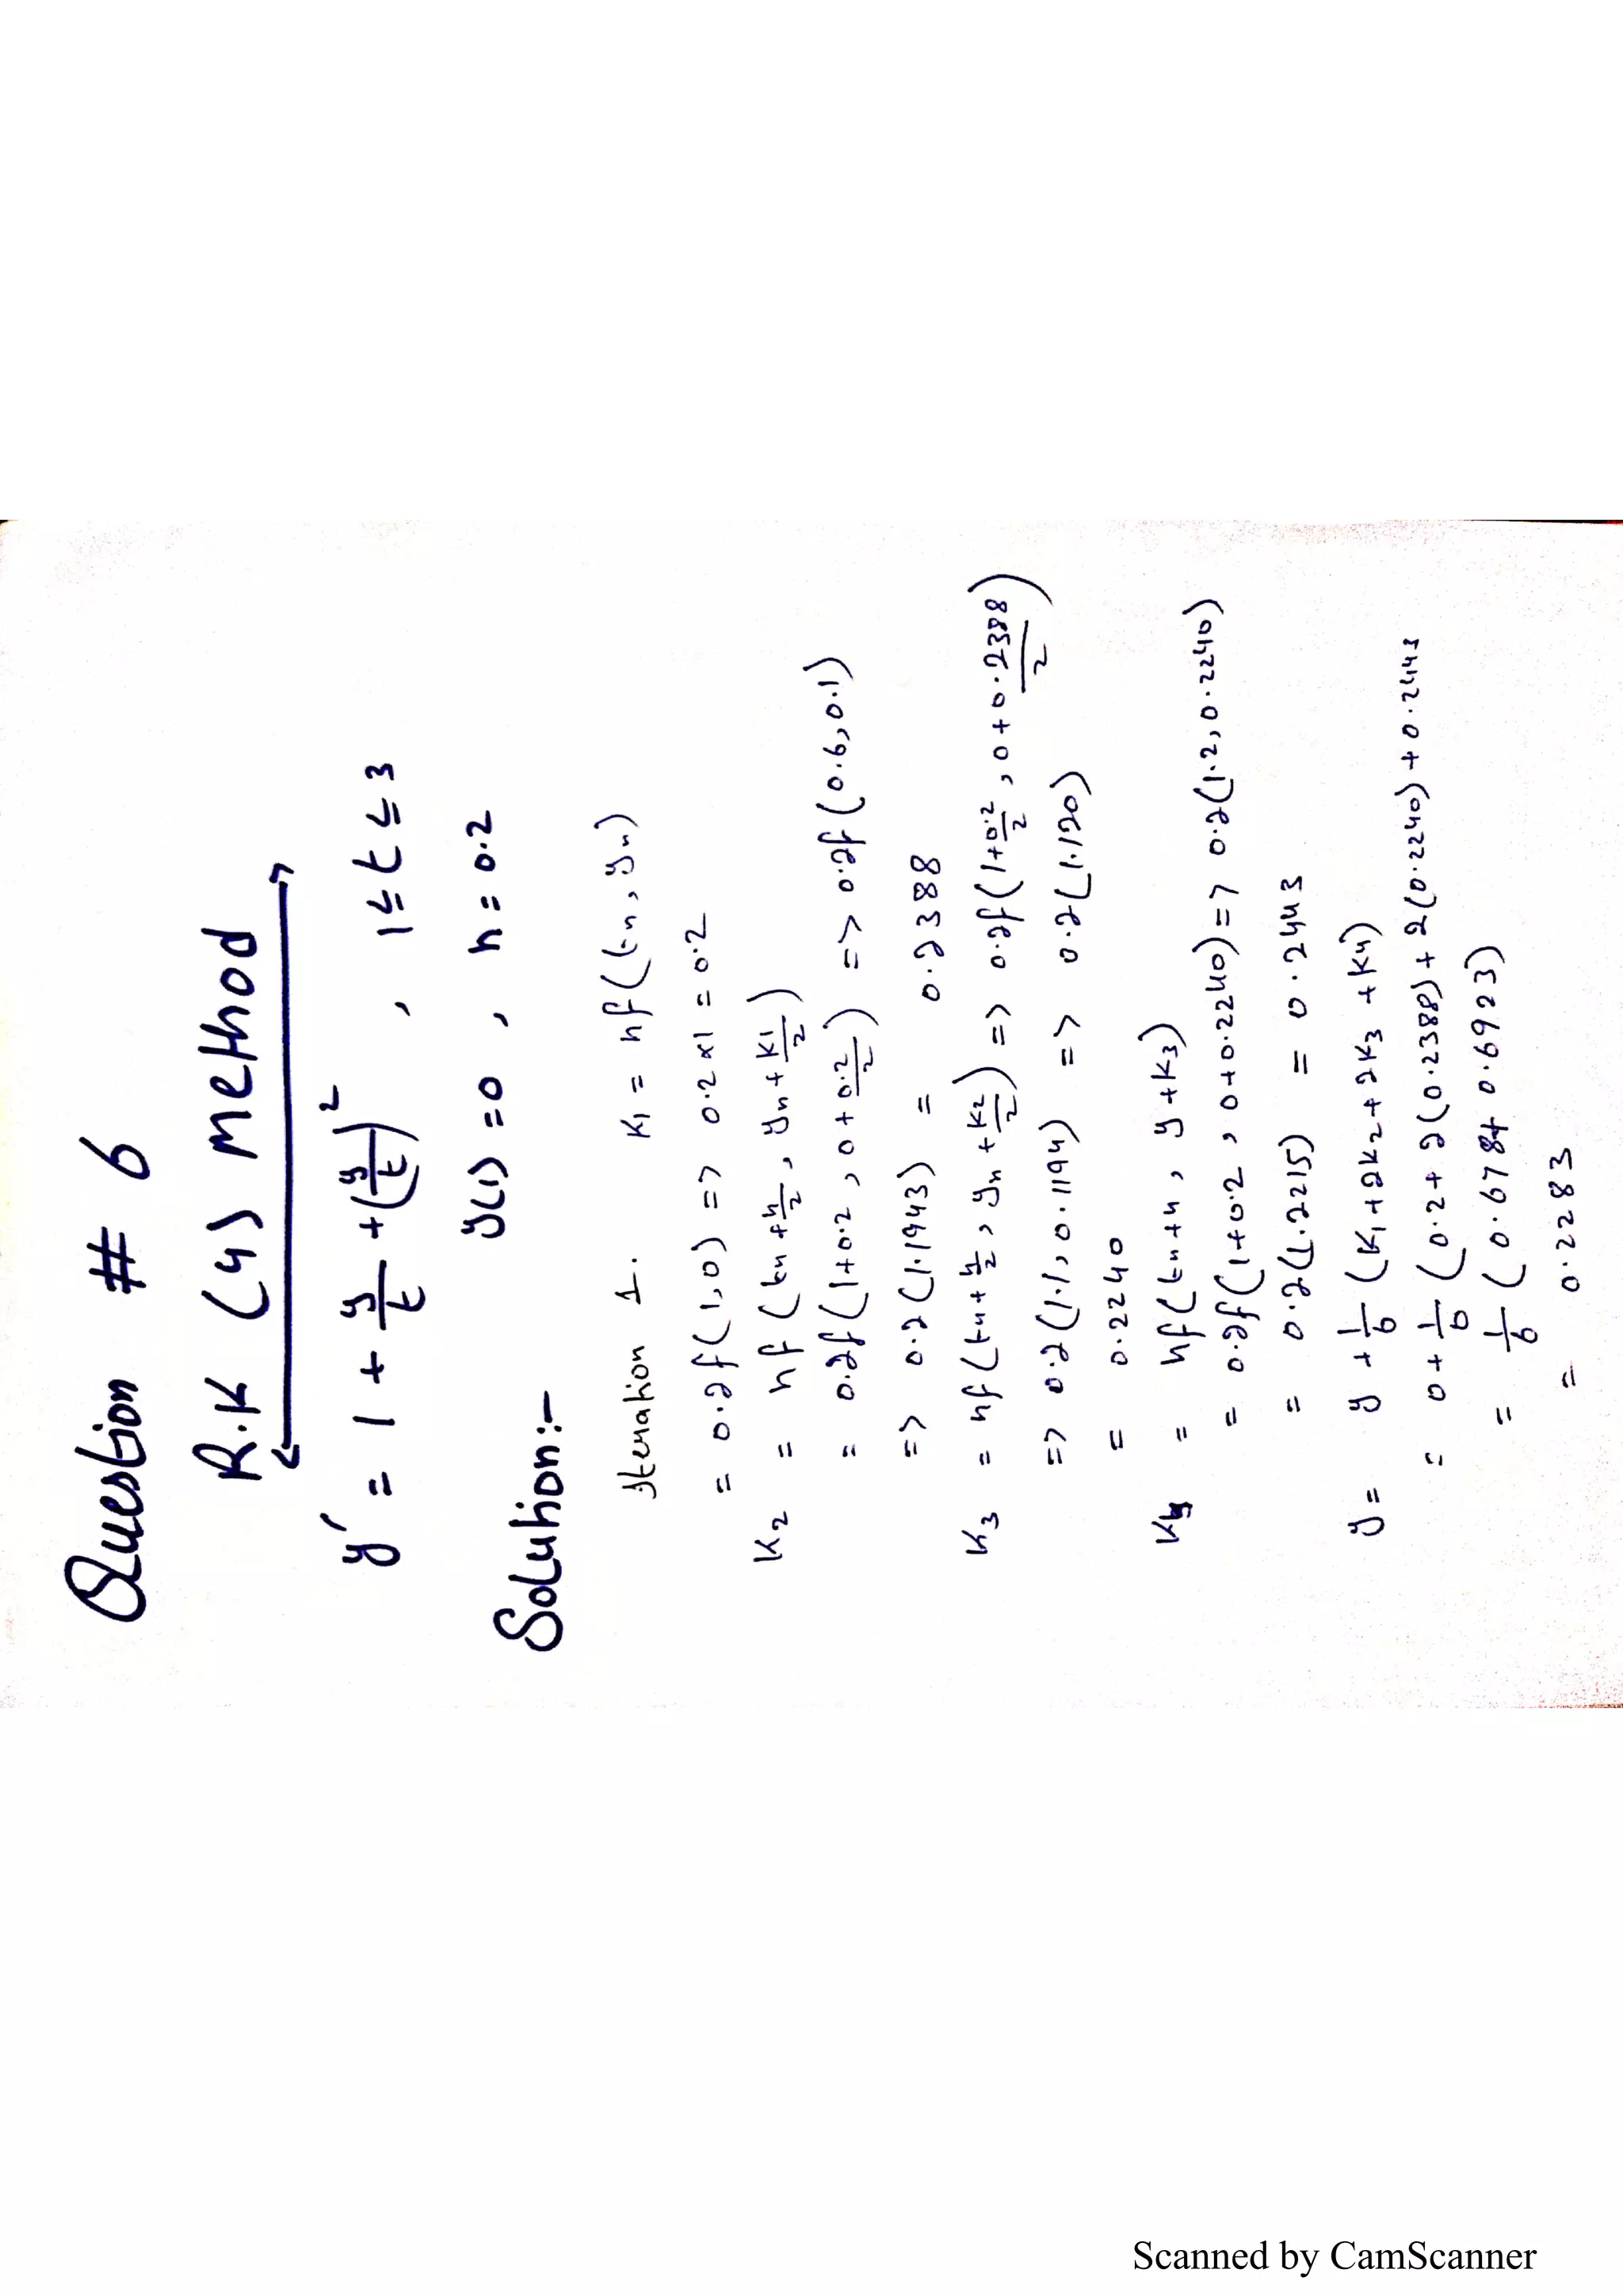 Question # 6
R.K (4) method
y' = 1 + y/t + (y/t)² , 1 ≤ t ≤ 3
y(1) = 0 , h = 0.2
Solution:-
Iteration 1. K1 = hf(tn, yn)
= 0.2f(1,0) => 0.2x1 = 0.2
K2 = hf(tn + h/2, yn + K1/2)
= 0.2f(1+0.2, 0+0.2/2) => 0.2f(0.6,0.1)
=> 0.2(1.1943) = 0.2388
K3 = hf(tn + h/2, yn + K2/2) => 0.2f(1+0.2/2, 0+0.2388/2)
=> 0.2(1.1, 0.1194) => 0.2(1.120)
= 0.2240
K4 = hf(tn+h, y+K3)
= 0.2f(1+0.2, 0+0.2240) => 0.2(1.2,0.2240)
= 0.2(1.2215) = 0.2443
y = y + 1/6 (K1+2K2+2K3+K4)
= 0 + 1/6 (0.2+2(0.2388)+2(0.2240)+0.2443
= 1/6 (0.678+0.6923)
= 0.2283
Scanned by CamScanner